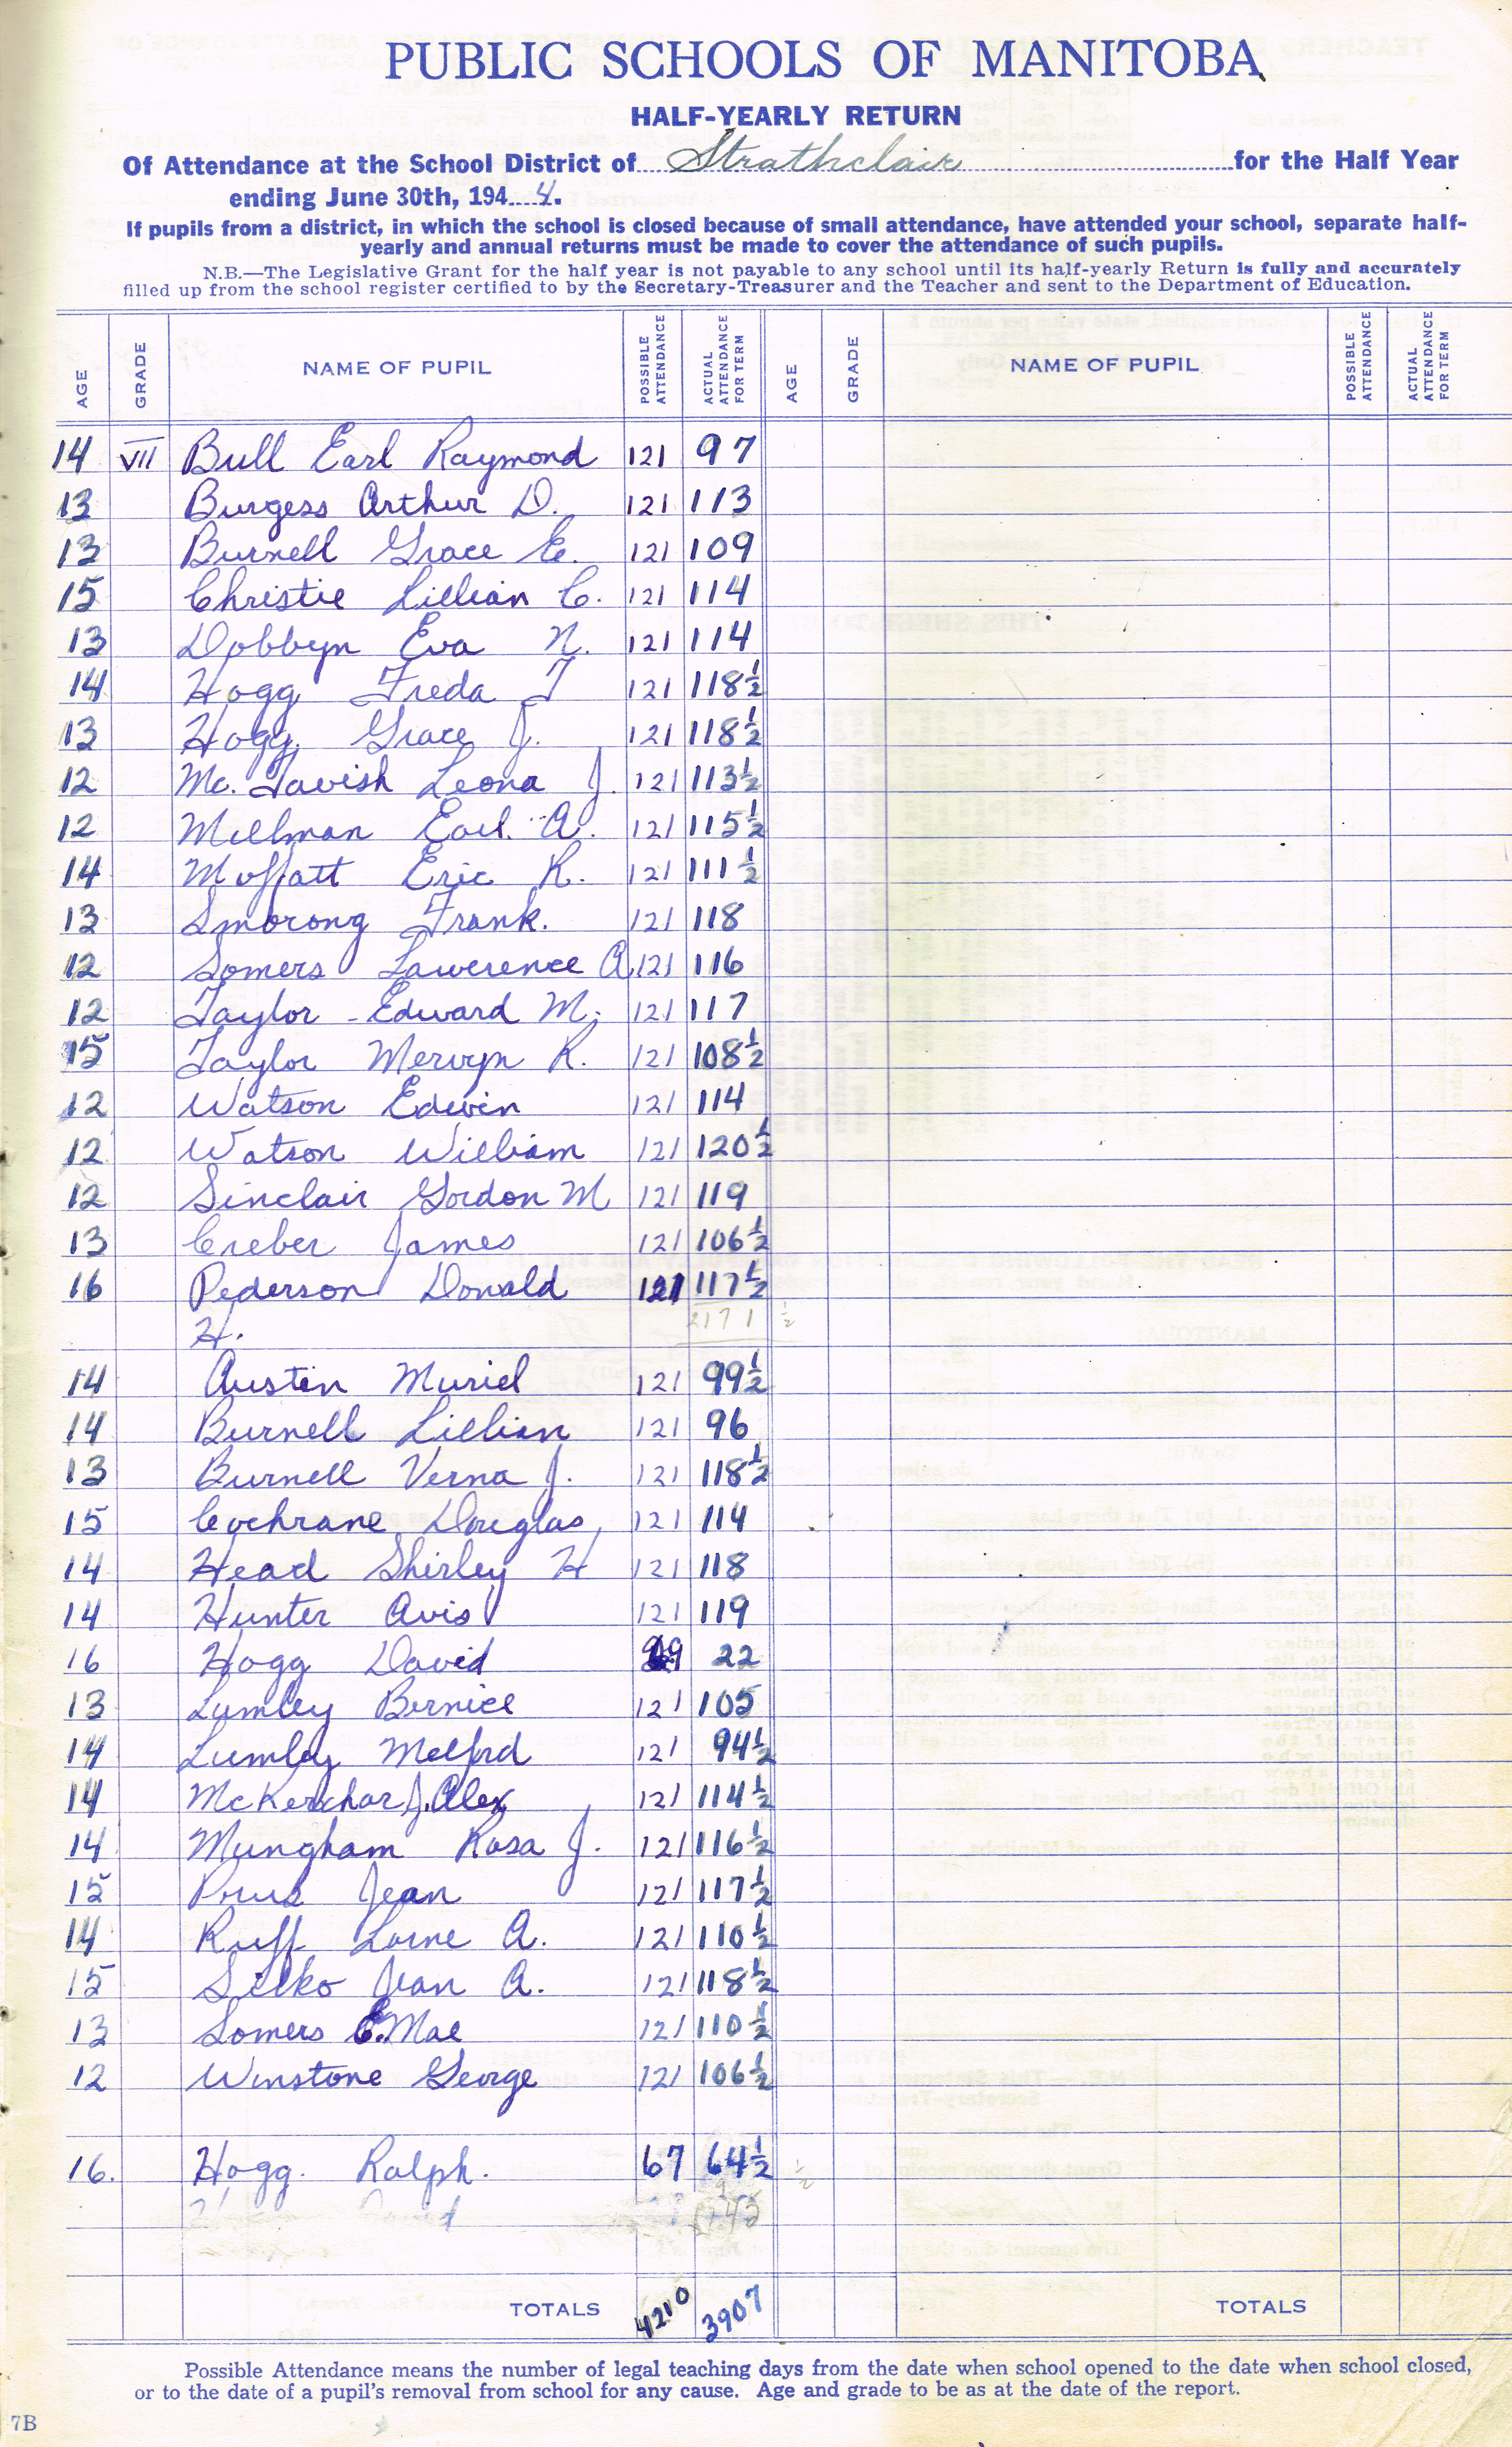 PUBLIC SCHOOLS OF MANITOBA
HALF-YEARLY RETURN
Of Attendance at the School District of Strathclair for the Half Year
ending June 30th, 194 4.
If pupils from a district, in which the school is closed because of small attendance, have attended your school, separate half-
yearly and annual returns must be made to cover the attendance of such pupils.
N.B.—The Legislative Grant for the half year is not payable to any school until its half-yearly Return is fully and accurately
filled up from the school register certified to by the Secretary-Treasurer and the Teacher and sent to the Department of Education.
AGE GRADE NAME OF PUPIL POSSIBLE ATTENDANCE ACTUAL ATTENDANCE FOR TERM AGE GRADE NAME OF PUPIL POSSIBLE ATTENDANCE ACTUAL ATTENDANCE FOR TERM
14 VII Bull Earl Raymond 121 97
13 Burgess Arthur D. 121 113
13 Burnell Grace E. 121 109
15 Christie Lillian C. 121 114
13 Dobbyn Eva N. 121 114
14 Hogg Freda T 121 118½
13 Hogg Grace J. 121 118½
12 Mc.Tavish Leona J. 121 113½
12 Millman Earl A. 121 115½
14 Moffatt Eric R. 121 111½
13 Smorong Frank. 121 118
12 Somers Lawerence A 121 116
12 Taylor - Edward M. 121 117
15 Taylor Mervyn R. 121 108½
12 Watson Edwin 121 114
12 Watson William 121 120½
12 Sinclair Gordon M 121 119
13 Creber James 121 106½
16 Pederson Donald 121 117½
H. 2171 ½
14 Austin Muriel 121 99½
14 Burnell Lillian 121 96
13 Burnell Verna J. 121 118½
15 Cochrane Douglas 121 114
14 Head Shirley H 121 118
14 Hunter Avis 121 119
16 Hogg David 22
13 Lumley Bernice 121 105
14 Lumley Melford 121 94½
14 McKerchar J. Alex 121 114½
14 Mungham Rosa J. 121 116½
15 Jean 121 117½
14 Ruff Lorne A. 121 110½
15 Silko Jean A. 121 118½
13 Somers E. Mae 121 110½
12 Winstone George 121 106½
16. Hogg. Ralph. 67 64½ ½
TOTALS 4210 3907 TOTALS
Possible Attendance means the number of legal teaching days from the date when school opened to the date when school closed,
or to the date of a pupil's removal from school for any cause. Age and grade to be as at the date of the report.
7B